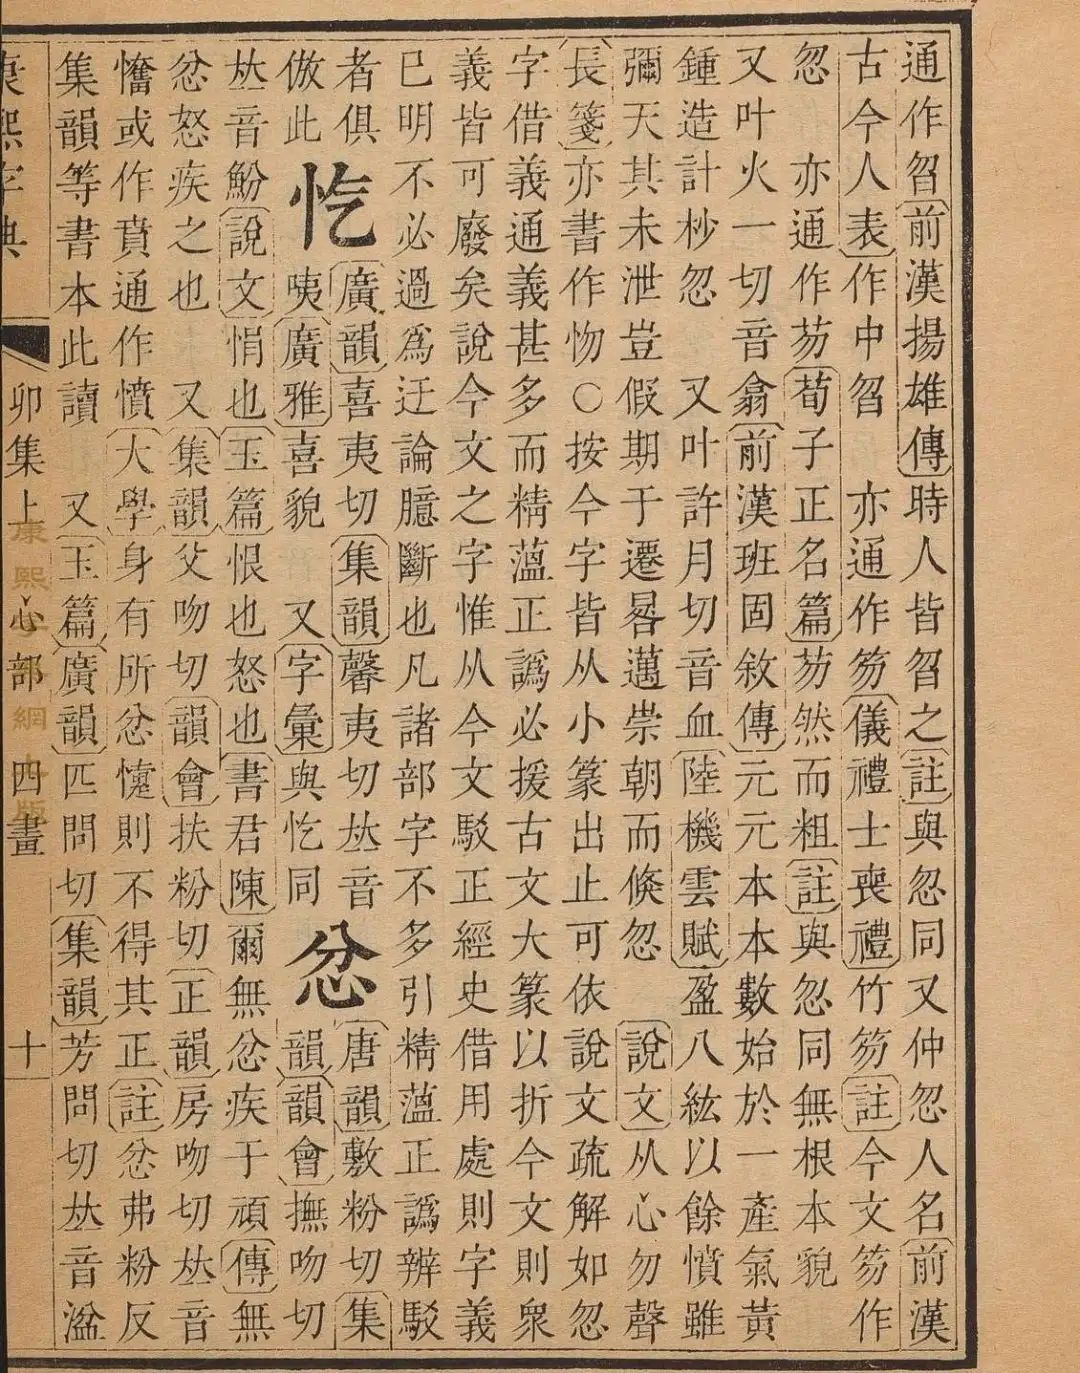 通作曶前漢揚雄傳時人皆曶之註與忽同又仲忽人名前漢
古今人表作中曶 亦通作笏儀禮士喪禮竹笏註今文笏作
忽 亦通作芴荀子正名篇芴然而粗註與忽同無根本貌
又叶火一切音翕前漢班固敘傳元元本本數始於一產氣黃
鍾造計杪忽 又叶許月切音血陸機雲賦盈八紘以餘憤雖
彌天其未泄豈假期于遷晷邁崇朝而倏忽 說文从心勿聲
長箋亦書作㣼○按今字皆从小篆出止可依說文疏解如忽
字借義通義甚多而精薀正譌必援古文大篆以折今文則衆
義皆可廢矣說今文之字惟从今文駁正經史借用處則字義
巳明不必過爲迂論臆斷也凡諸部字不多引精薀正譌辨駁
者俱
倣此
忔
廣韻喜夷切集韻馨夷切𠀤音
咦廣雅喜貌 又字彙與忔同
忿
唐韻敷粉切集
韻韻會撫吻切
𠀤音魵說文悁也玉篇恨也怒也書君陳爾無忿疾于頑傳無
忿怒疾之也 又集韻父吻切韻會扶粉切正韻房吻切𠀤音
憤或作賁通作憤大學身有所忿懥則不得其正註忿弗粉反
集韻等書本此讀 又玉篇廣韻匹問切集韻芳問切𠀤音湓
康熙字典
卯集上
心部
四畫
十
康熙
網
版